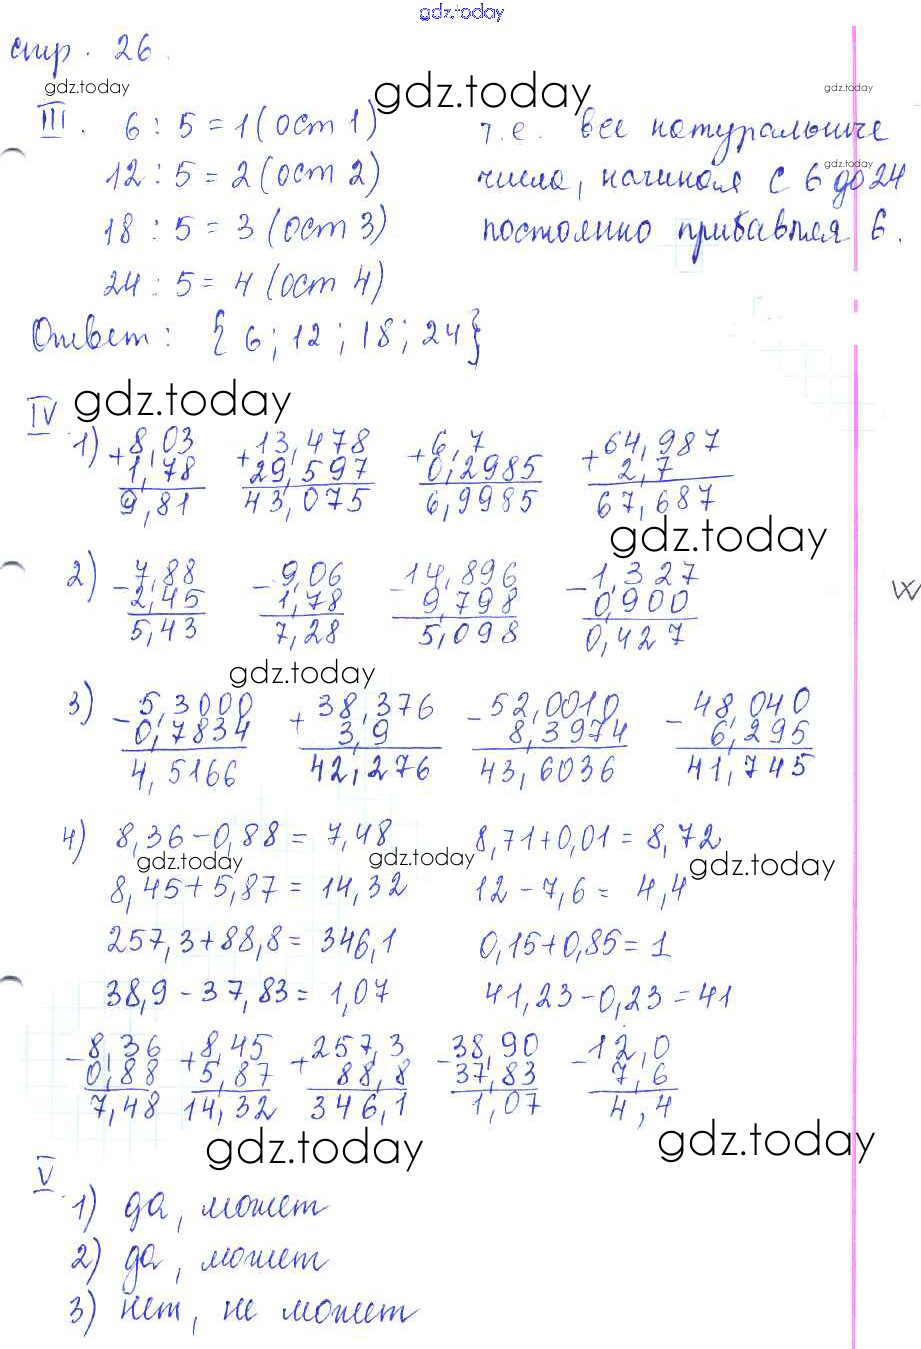 gdz.today
стр. 26.
gdz.today gdz.today
III. 6 : 5 = 1 (ост 1) т.е. все натуральные
gdz.today
12 : 5 = 2 (ост 2) числа, начиная с 6 до 24
18 : 5 = 3 (ост 3) постоянно прибавляя 6.
24 : 5 = 4 (ост 4)
Ответ: {6; 12; 18; 24}
gdz.today
IV
1) + 8,03 + 13,478 + 6,7 + 64,987
1,78 29,597 0,2985 2,7
9,81 43,075 6,9985 67,687
gdz.today
2) - 7,88 - 9,06 - 14,896 - 1,327
2,45 1,78 9,798 0,900
5,43 7,28 5,098 0,427
gdz.today
3) - 5,3000 + 38,376 - 52,0010 - 48,040
0,7834 3,9 8,3974 6,295
4,5166 42,276 43,6036 41,745
4) 8,36 - 0,88 = 7,48 8,71 + 0,01 = 8,72
gdz.today gdz.today gdz.today
8,45 + 5,87 = 14,32 12 - 7,6 = 4,4
257,3 + 88,8 = 346,1 0,15 + 0,85 = 1
38,9 - 37,83 = 1,07 41,23 - 0,23 = 41
- 8,36 + 8,45 + 257,3 - 38,90 - 12,0
0,88 5,87 88,8 37,83 7,6
7,48 14,32 346,1 1,07 4,4
gdz.today gdz.today
V
1) да, может
2) да, может
3) нет, не может
gdz.today